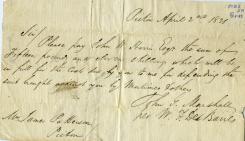 Pictou April 2nd 1828
Sir
Please pay John W. Harris Esqr the sum of
fifteen pounds and eleven shillings which will be
in full for the Costs due by you to me for defending the
suit brought against you by Mortimer's
John J. Marshall
per W. F. DesBarres
Mr James Patterson
Pictou